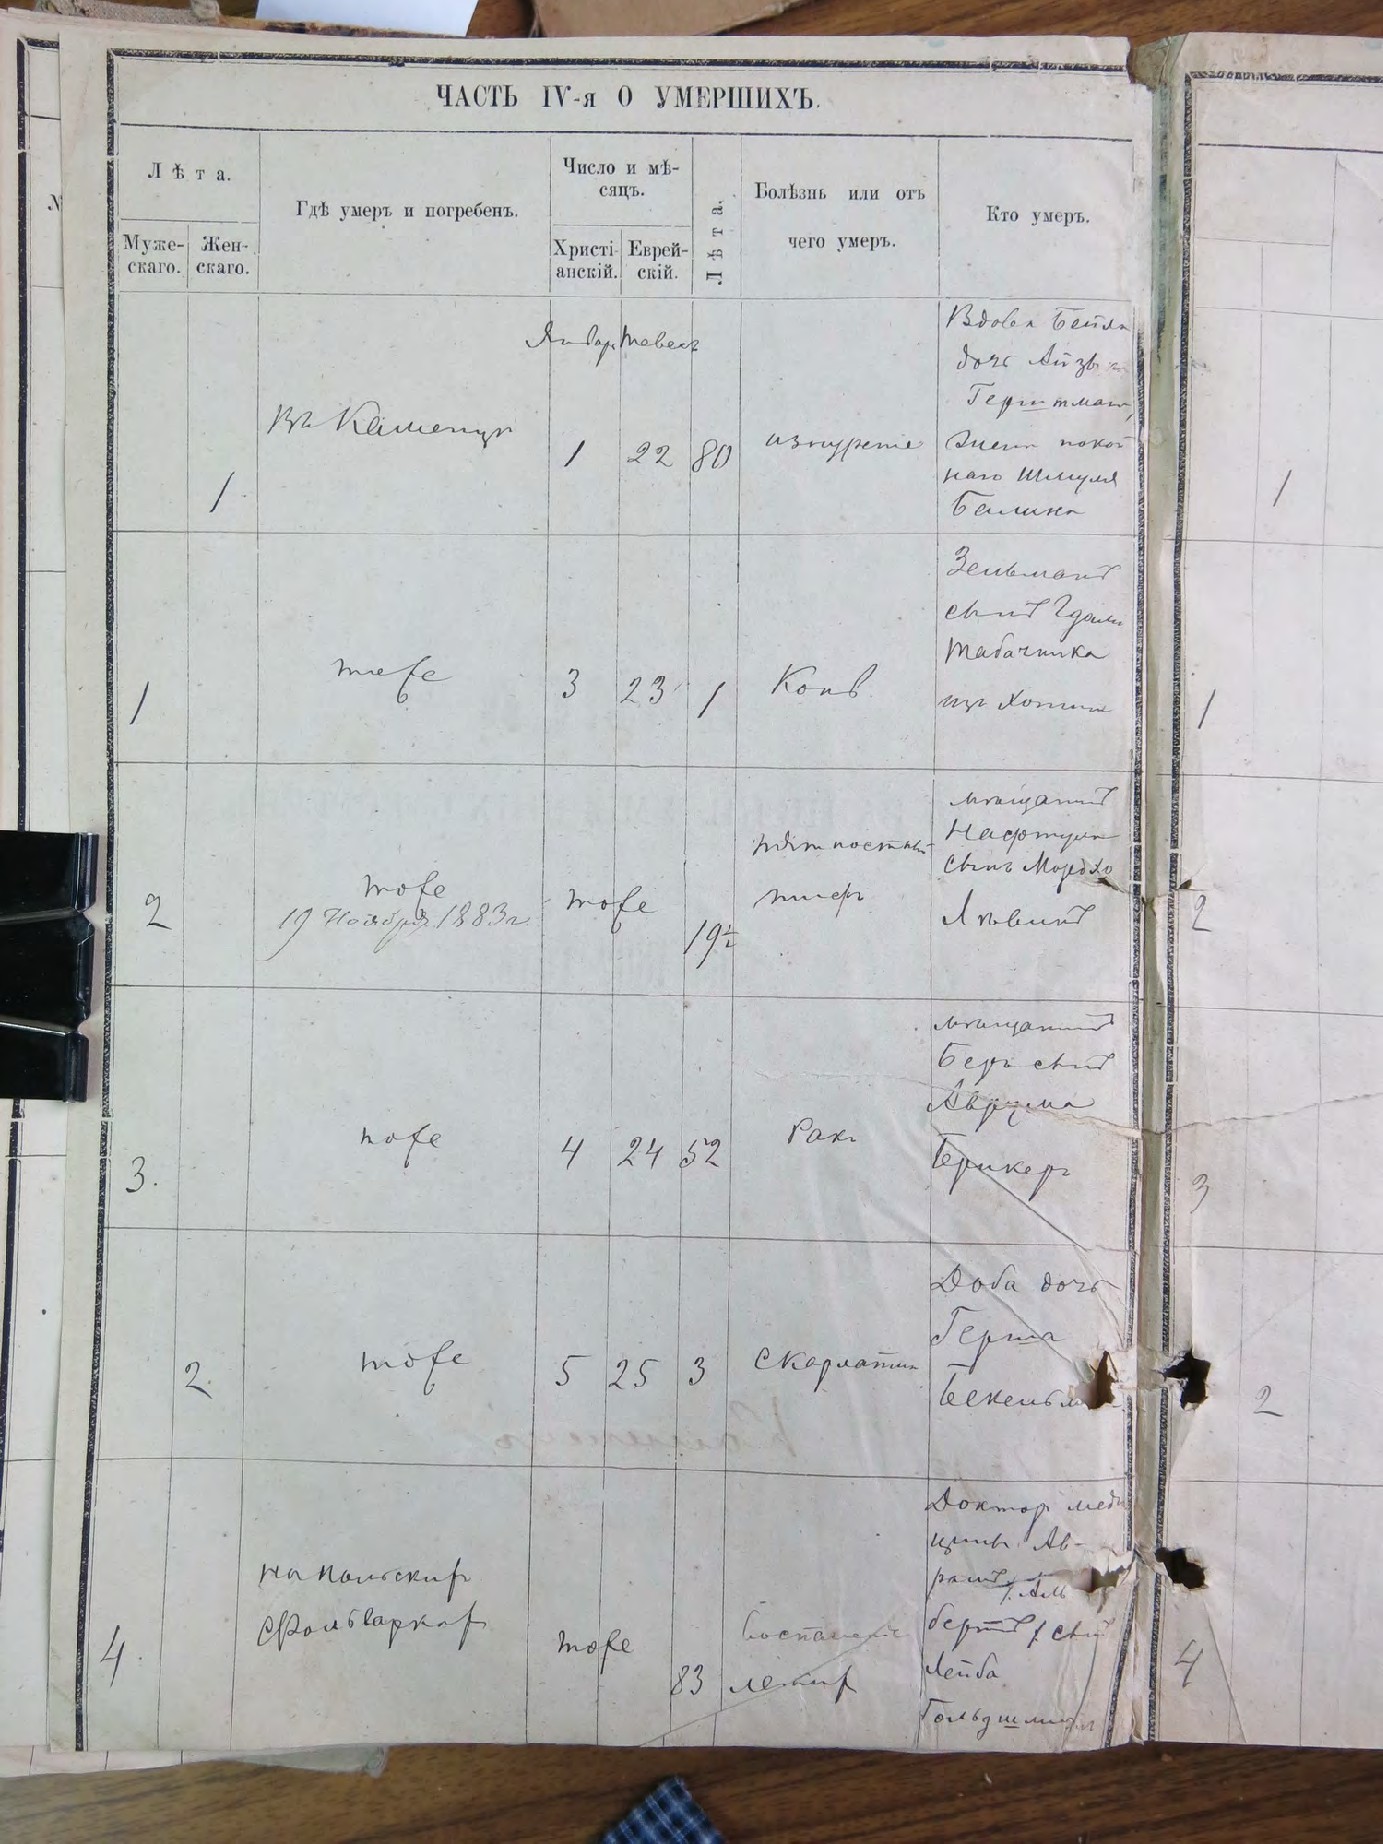 ЧАСТЬ IV-я О УМЕРШИХЪ.
Лѣта.
Муже-
скаго.
Жен-
скаго.
Гдѣ умеръ и погребенъ.
Число и мѣ-
сяцъ.
Христі-
анскій.
Еврей-
скій.
Лѣта.
Болѣзнь или отъ
чего умеръ.
Кто умеръ.
1
Въ Каменцѣ
Январ Тевесъ
1 22 80
изнуреніе
Вдова Бейла
дочь Айзи
Герштмана,
жена покой
наго Шмуля
Балика
1
1
тоже
3 23 1
Корь
Зельманъ
сынъ Гдали
Табачника
изъ Хотина
1
2
тоже
19 Ноября 1883 г.
тоже
19½
пятностный
тифъ
мѣщанинъ
Нафтула
сынъ Мордко
Лявинъ
2
3.
тоже
4 24 52
Ракъ
мѣщанинъ
Беръ сынъ
Аврума
Берикеръ
3
2.
тоже
5 25 3
Скарлатин
Доба дочь
Герша
Бекельм
2
4.
на польскихъ
фольваркахъ
тоже
83
Воспаленіе
легкихъ
Докторъ меди
цины Ав-
рамъ /: Аль
бертъ /: сынъ
Лейба
Гольдшмидт
4